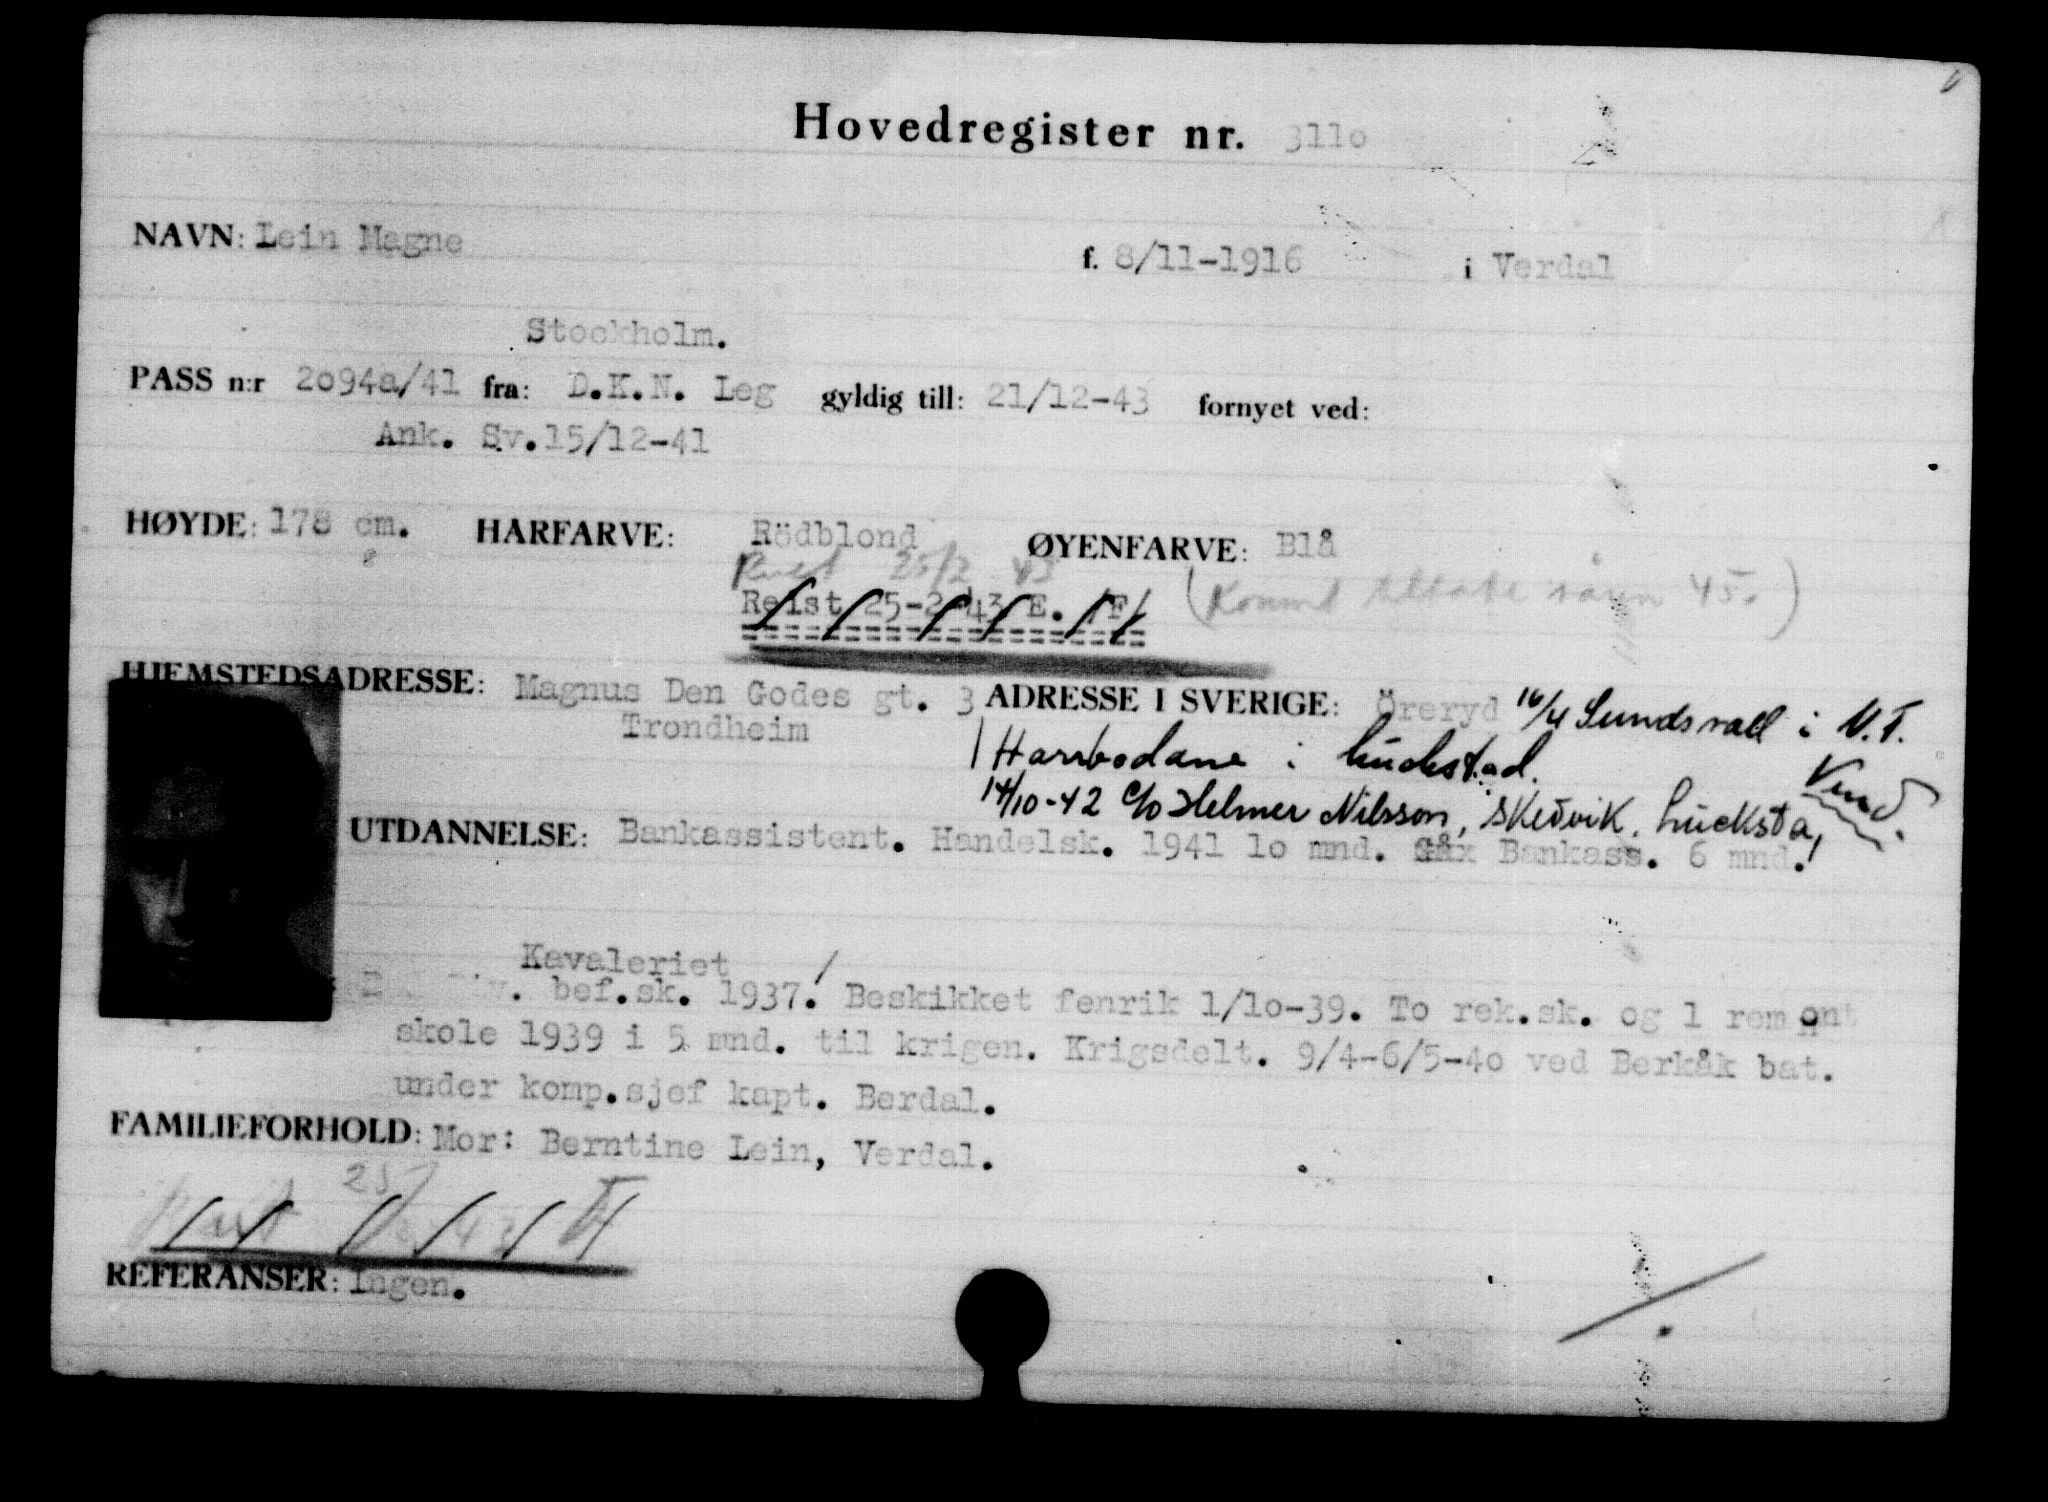 Hovedregister nr. 3110
NAVN: Lein Magne f. 8/11-1916 i Verdal
Stockholm.
PASS n:r 2o94a/41 fra: D.K.N. Leg gyldig till: 21/12-43 fornyet ved:
Ank. Sv.15/12-41
HØYDE: 178 cm. HARFARVE: Rödblond ØYENFARVE: Blå
Reist 25/2 43
Reist 25-2-43 E. /F/ ( 45.)
HJEMSTEDSADRESSE: Magnus Den Godes gt. 3 ADRESSE I SVERIGE: Öreryd 16/4 Sundsvall i V.T.
Trondheim
Harrbodane i Luckstad.
Vend.
14/10-42 c/o Helmer Nilsson, Skedvik, Lucksta,
UTDANNELSE: Bankassistent. Handelsk. 1941 1o mnd. Bankass. 6 mnd.
Kavaleriet
bef.sk. 1937. Beskikket fenrik 1/1o-39. To rek.sk. og 1 remont
skole 1939 i 5 mnd. til krigen. Krigsdelt. 9/4-6/5-4o ved Berkåk bat.
under komp.sjef kapt. Berdal.
FAMILIEFORHOLD: Mor: Berntine Lein, Verdal.
Reist 25/2 43 F
REFERANSER: Ingen.